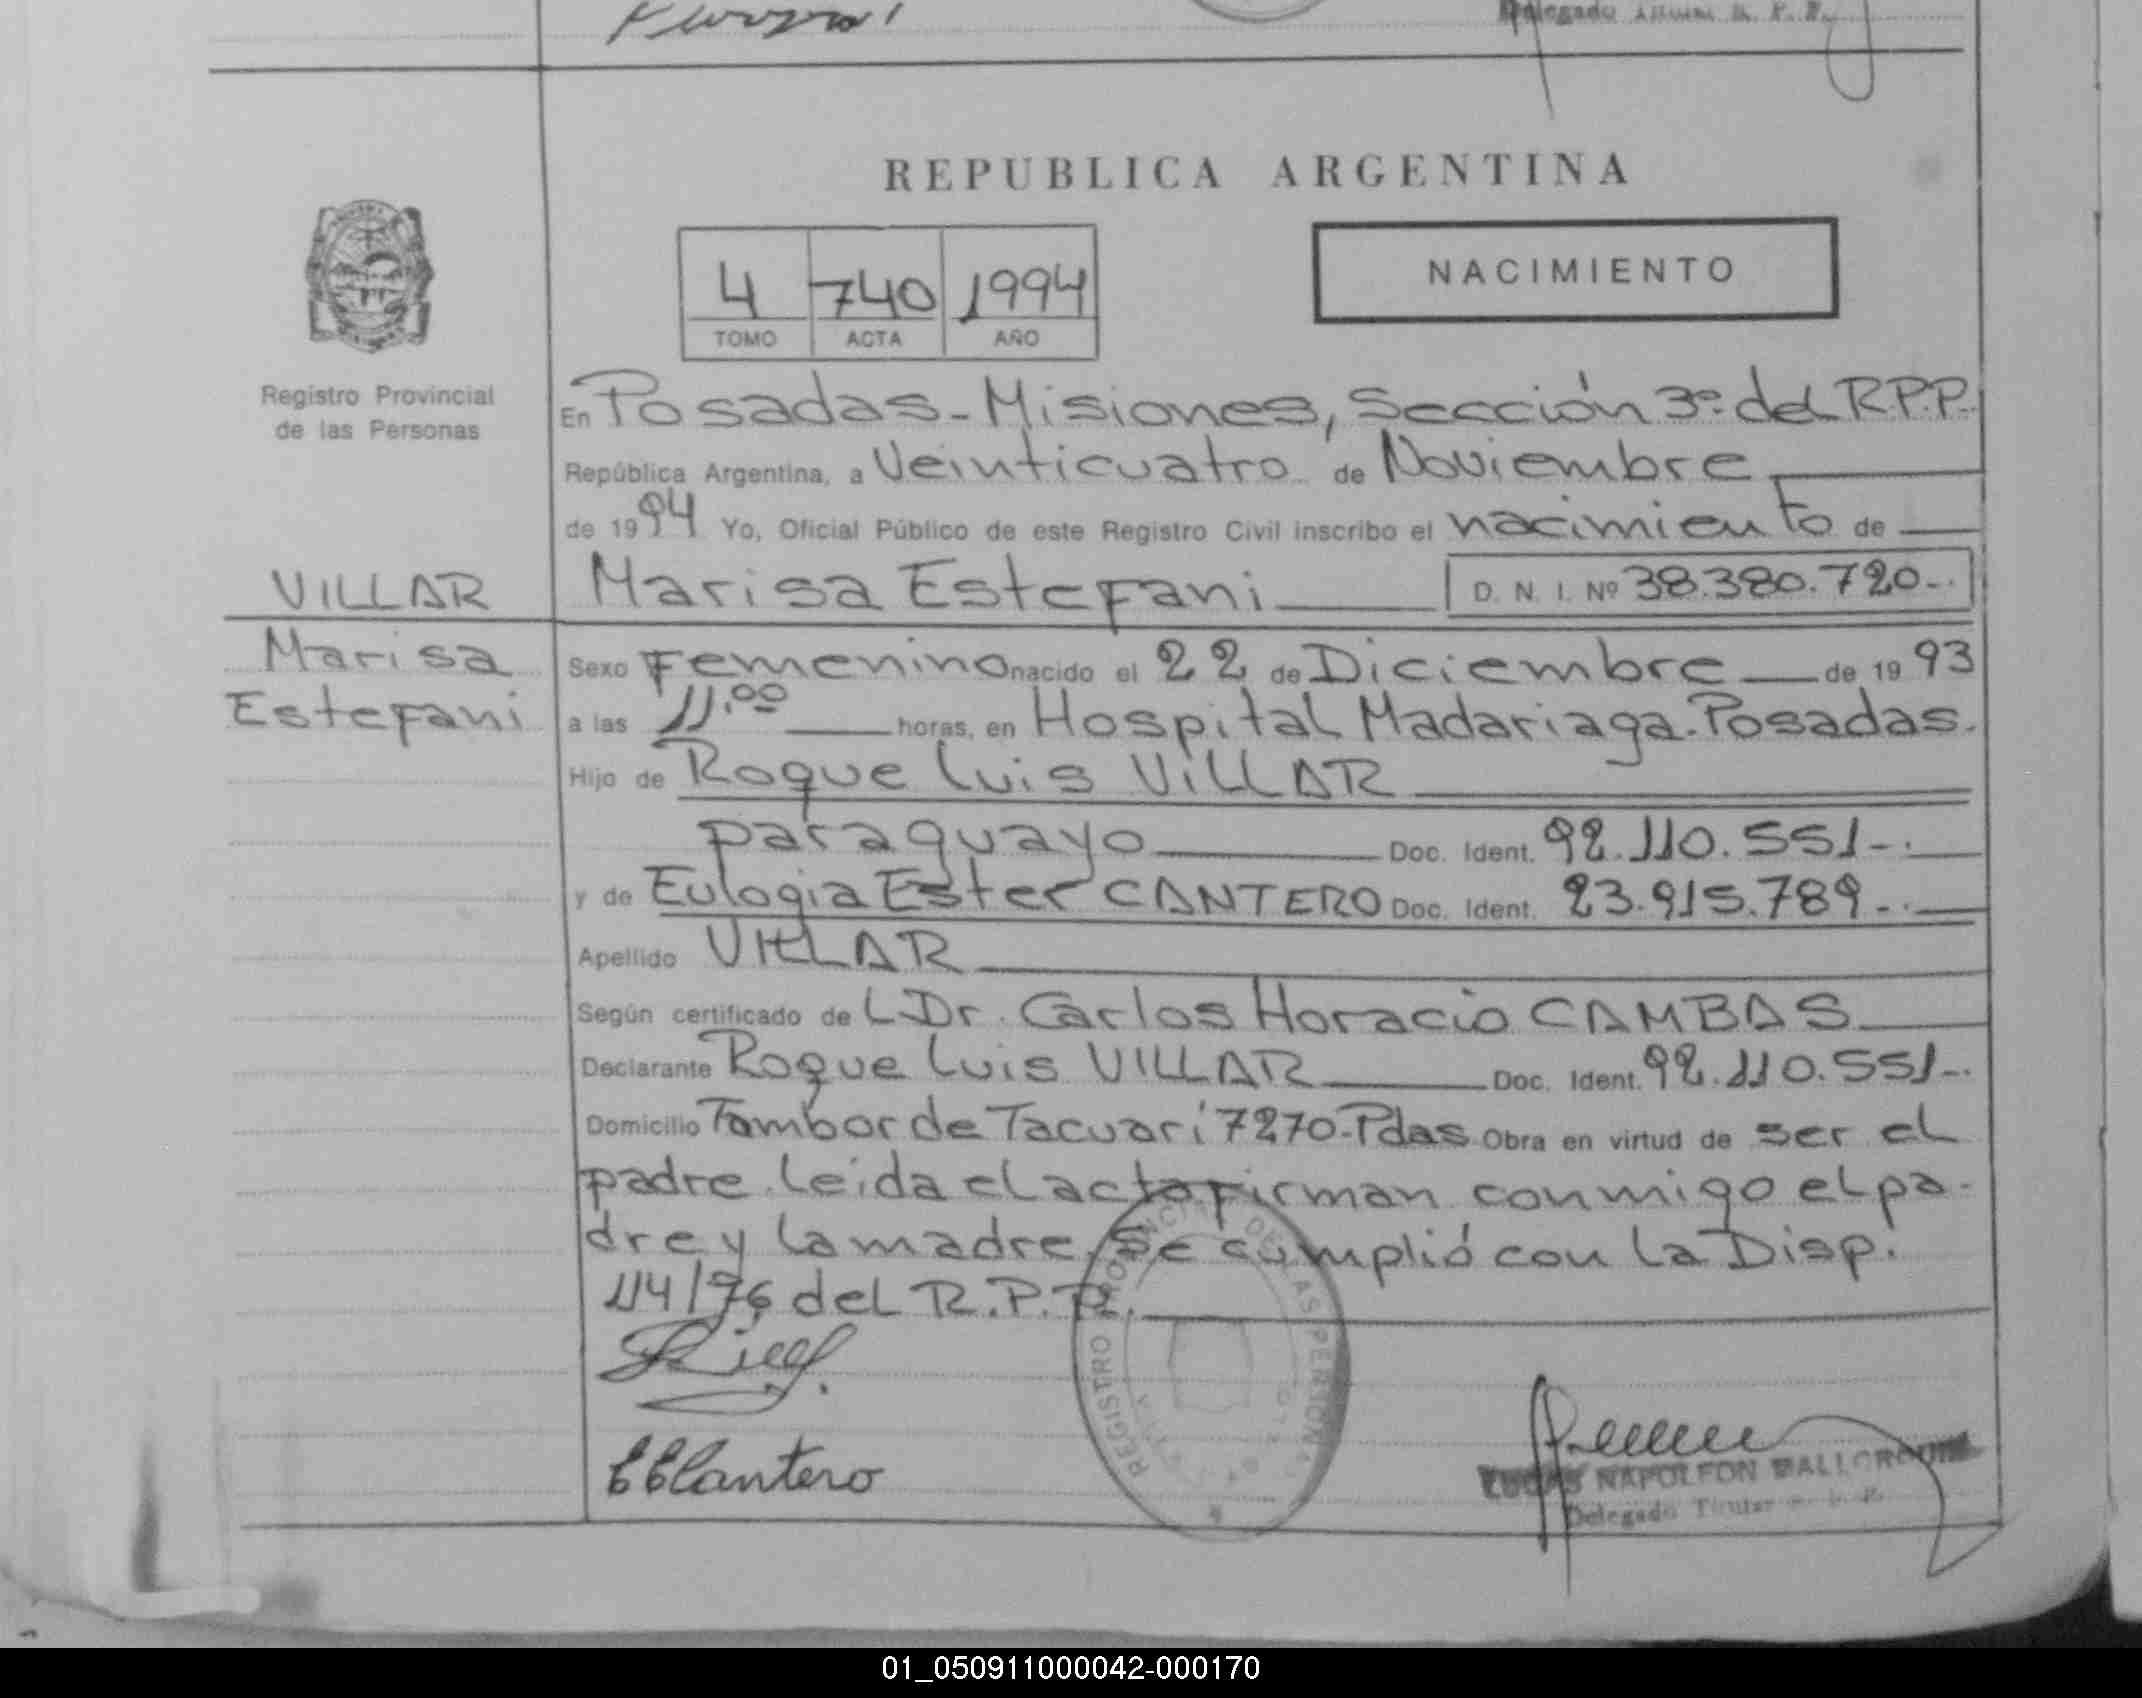 Delegado Titular R. P. P.
REPUBLICA ARGENTINA
4 740 1994
TOMO ACTA AÑO
NACIMIENTO
Registro Provincial
de las Personas
En Posadas - Misiones, Sección 3º del R.P.P.
República Argentina, a Veinticuatro de Noviembre
de 1994 Yo, Oficial Público de este Registro Civil inscribo el nacimiento de
VILLAR
Marisa Estefani
D. N. I. Nº 38.380.720-.
Marisa
Estefani
Sexo Femenino nacido el 22 de Diciembre de 1993
a las 11:00 horas, en Hospital Madariaga. Posadas.
Hijo de Roque Luis VILLAR
paraguayo Doc. Ident. 92.110.551-.
y de Eulogia Ester CANTERO Doc. Ident. 23.915.789-.
Apellido VILLAR
Según certificado de L Dr. Carlos Horacio CAMBAS
Declarante Roque Luis VILLAR Doc. Ident. 92.110.551-.
Domicilio Tambor de Tacuari 7270-Pdas Obra en virtud de ser el
padre. Leída el acta firman conmigo el pa-
dre y la madre. Se cumplió con la Disp.
114/76 del R.P.P.
REGISTRO PROVINCIAL DE LAS PERSONAS
EECantero
LUCAS NAPOLEON
Delegado Titular R. P. P.
01_050911000042-000170